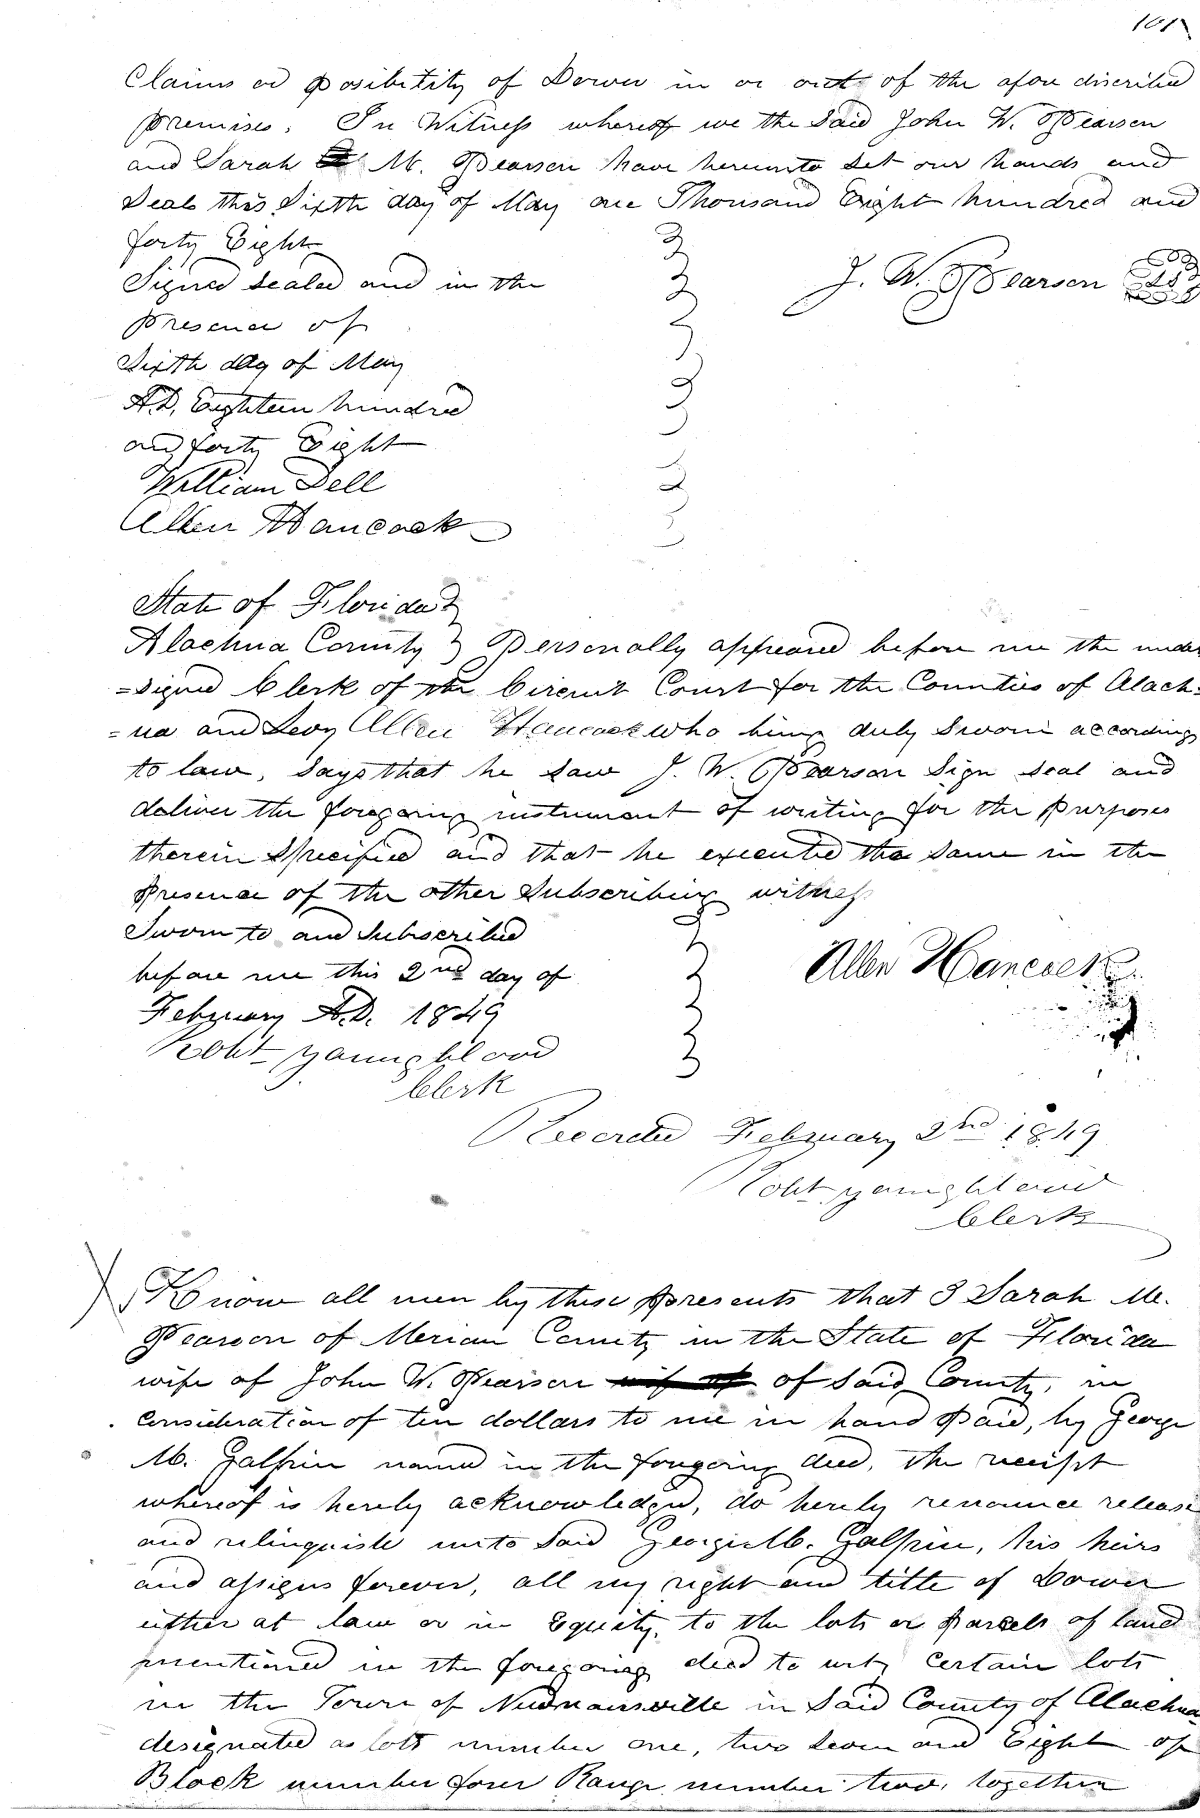 101
Claims or posibility of Dower in or out of the afore discribed
premises. In Witness whereof we the Said John W. Pearson
and Sarah M. Pearson have hereunto Set our hands and
Seals this Sixth day of May one Thousand Eight hundred and
forty Eight
Signed Sealed and in the
J. W. Pearson
presence of
Sixth day of May
A.D. Eighteen hundred
and forty Eight
William Dell
Allen Hancock
State of Florida
Alachua County Personally appeared before me the under
=signed Clerk of the Circuit Court for the Counties of Alach=
=ua and Levy Allen Hancock who being duly Sworn according
to law, Says that he Saw J. W. Pearson Sign Seal and
deliver the foregoing instrument of writing for the purposes
therein Specified and that he executed the Same in the
presence of the other Subscribing witness
Sworn to and Subscribed
before me this 2nd day of
Allen Hancock
February A.D. 1849
Robt Youngblood
Clerk
Recorded February 2nd 1849
Robt Youngblood
Clerk
Know all men by these presents that I Sarah M.
Pearson of Merian County in the State of Florida
wife of John W. Pearson wife of of Said County, in
consideration of ten dollars to me in hand paid, by George
M. Galphin named in the foregoing deed, the receipt
whereof is hereby acknowledged, do hereby renounce release
and relinquish unto Said George M. Galphin, his heirs
and assigns forever, all my right and title of Dower
either at law or in Equity, to the lots or parcels of land
mentioned in the foregoing deed to wit, Certain lots
in the Town of Newnansville in Said County of Alachua
designated as lots number one, two Seven and Eight of
Block number four Range number two, together